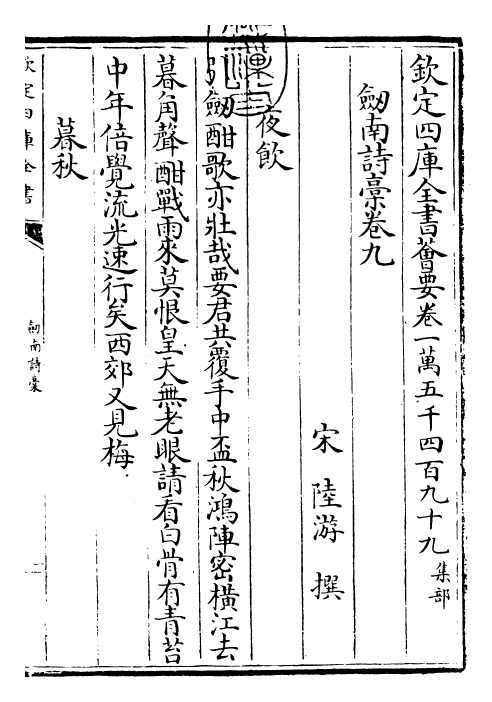 欽定四庫全書薈要卷一萬五千四百九十九 集部
劒南詩稾卷九
宋 陸游 撰
夜飲
劒酣歌亦壯哉要君共覆手中盃秋鴻陣密橫江去
暮角聲酣戰雨來莫恨皇天無老眼請看白骨有青苔
中年倍覺流光速行矣西郊又見梅
暮秋
欽定四庫全書
劒南詩稾
一